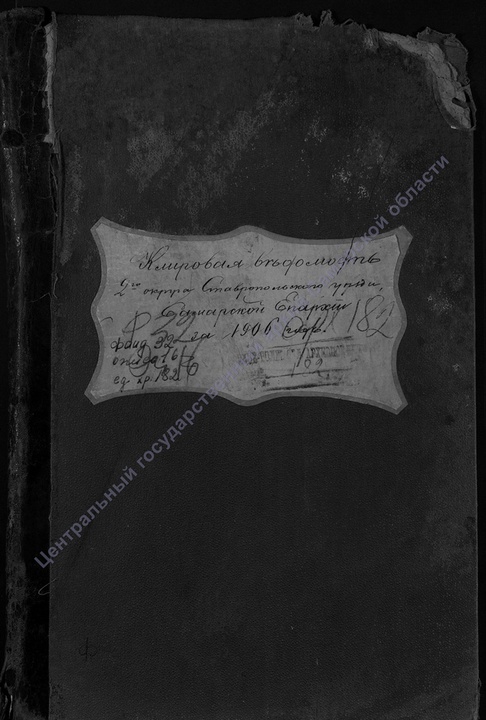 Клировая вѣдомость
2го округа Ставропольскаго уѣзда,
Самарской Епархіи
за 1906 годъ.
182
фонд 32
опись 6
ед. хр. 182
Центральный государственный области